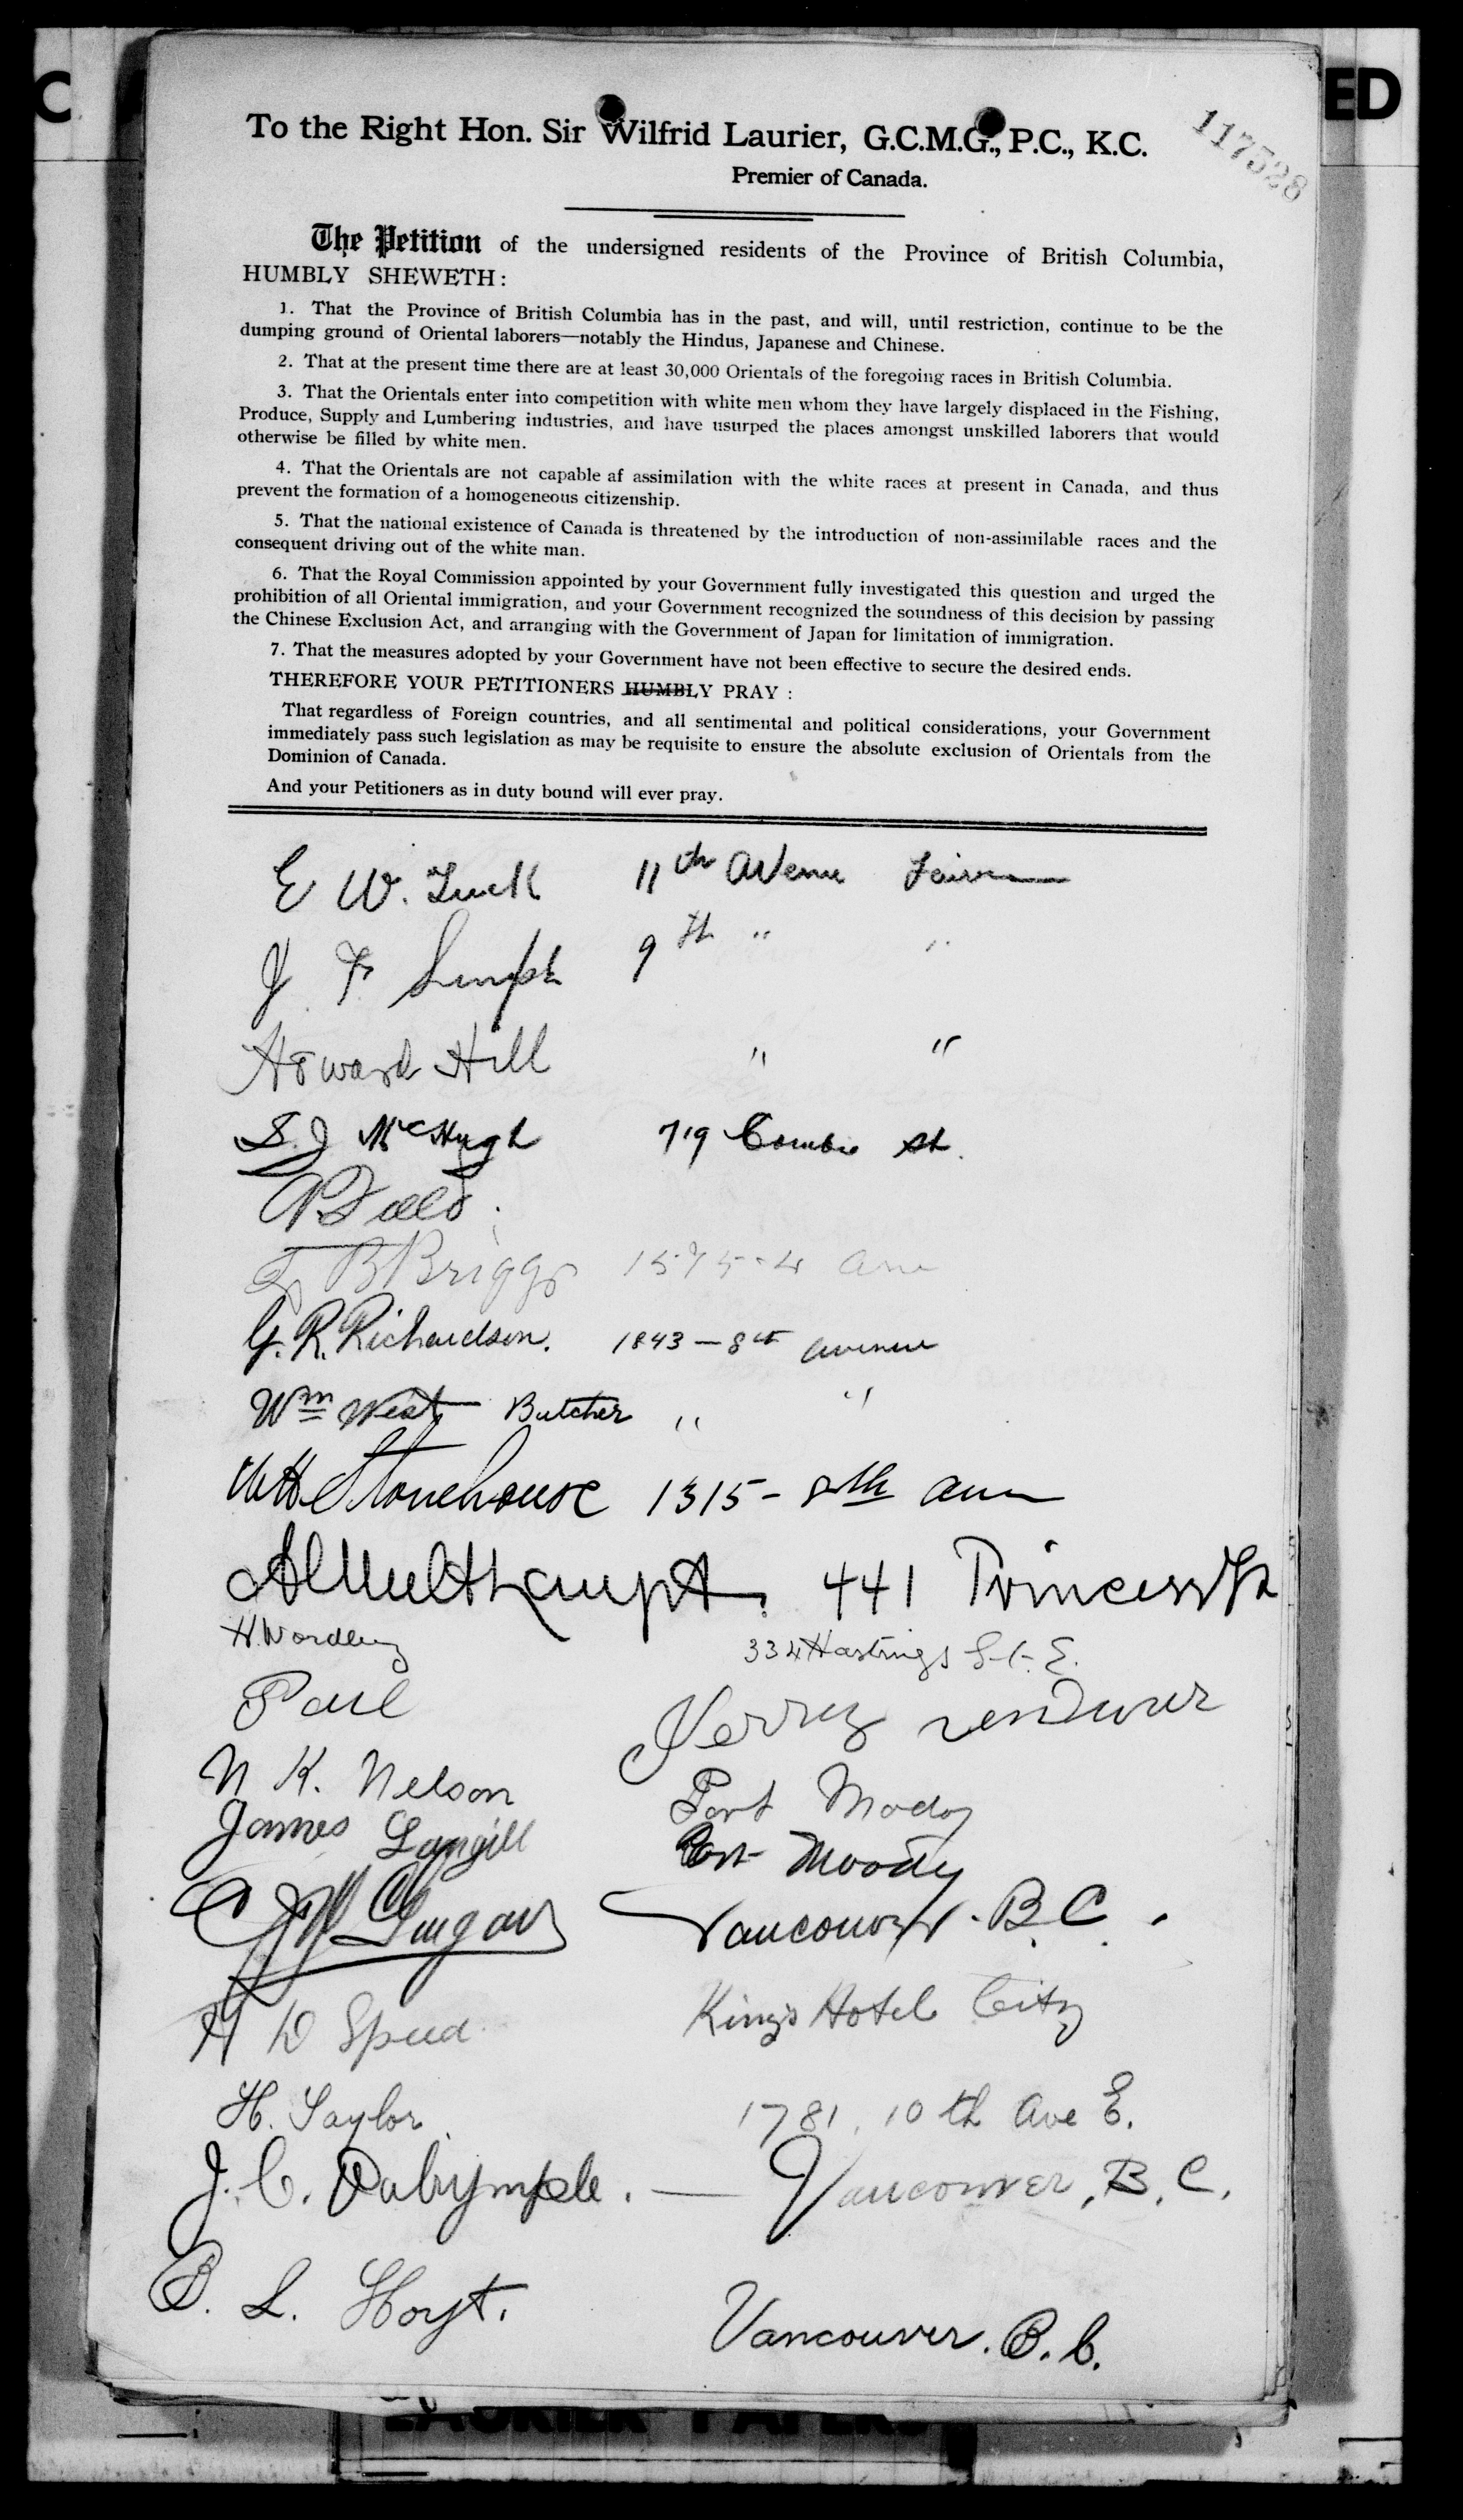 C
ED
To the Right Hon. Sir Wilfrid Laurier, G.C.M.G., P.C., K.C.
117528
Premier of Canada.
The Petition of the undersigned residents of the Province of British Columbia,
HUMBLY SHEWETH:
1. That the Province of British Columbia has in the past, and will, until restriction, continue to be the
dumping ground of Oriental laborers—notably the Hindus, Japanese and Chinese.
2. That at the present time there are at least 30,000 Orientals of the foregoing races in British Columbia.
3. That the Orientals enter into competition with white men whom they have largely displaced in the Fishing,
Produce, Supply and Lumbering industries, and have usurped the places amongst unskilled laborers that would
otherwise be filled by white men.
4. That the Orientals are not capable af assimilation with the white races at present in Canada, and thus
prevent the formation of a homogeneous citizenship.
5. That the national existence of Canada is threatened by the introduction of non-assimilable races and the
consequent driving out of the white man.
6. That the Royal Commission appointed by your Government fully investigated this question and urged the
prohibition of all Oriental immigration, and your Government recognized the soundness of this decision by passing
the Chinese Exclusion Act, and arranging with the Government of Japan for limitation of immigration.
7. That the measures adopted by your Government have not been effective to secure the desired ends.
THEREFORE YOUR PETITIONERS HUMBLY PRAY :
That regardless of Foreign countries, and all sentimental and political considerations, your Government
immediately pass such legislation as may be requisite to ensure the absolute exclusion of Orientals from the
Dominion of Canada.
And your Petitioners as in duty bound will ever pray.
E W. Luck 11th Avenue
J F 9th " "
Howard Hill " "
S. J McHugh 719 Cambie St.
B Briggs 1575-4 Ave
G. R. Richardson. 1843 - 8th Avenue
Wm West Butcher " "
WH Stonehouse 1315 - 8th Ave
441 Princess St
334 Hastings St. E.
Paul
N K. Nelson Port Mody
James Langill Port Moody
Vancouver. B C.
H D Speed Kings Hotel City
H. Taylor 1781. 10th Ave E.
J. C. Dalrymple. — Vancouver, B. C.
B. L. Hoyt. Vancouver. B. C.
LAURIER PAPERS